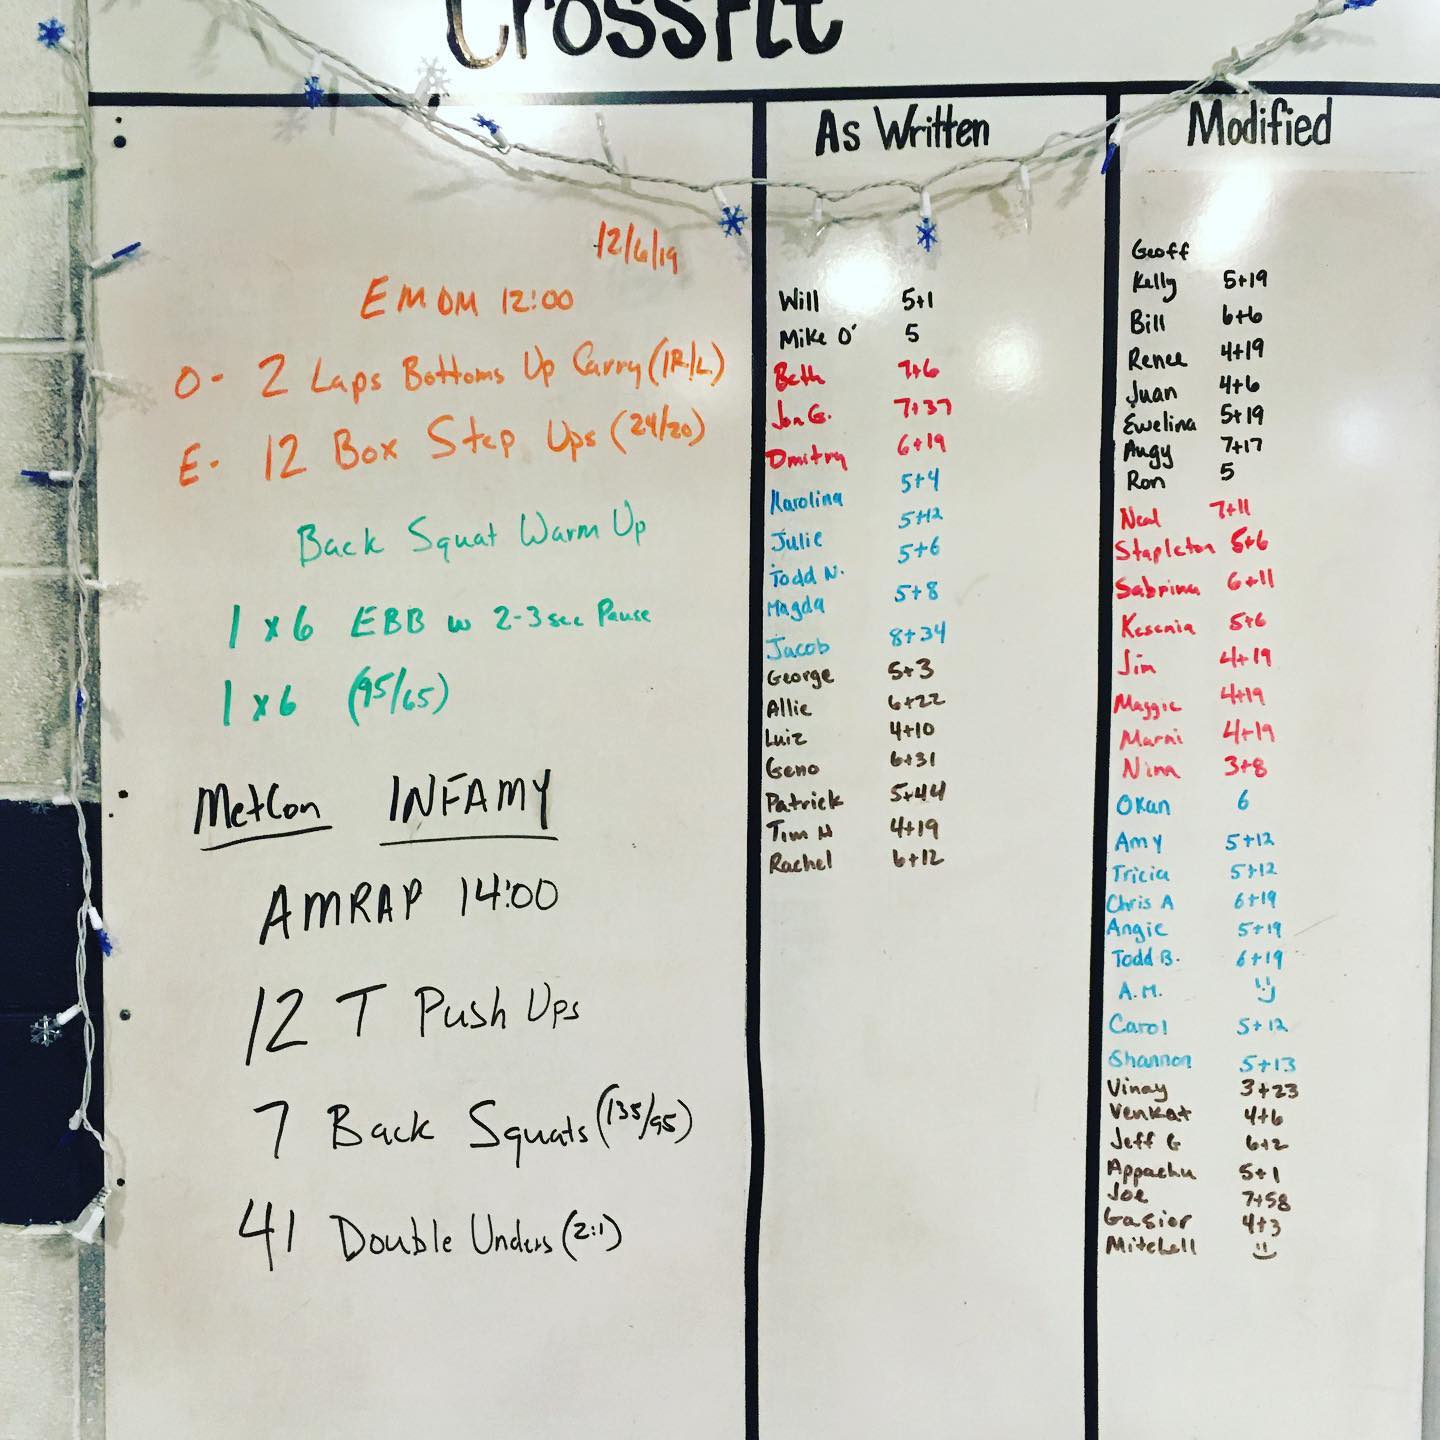 CrossFit
As Written
Modified
12/6/19
EMOM 12:00
O- 2 Laps Bottoms Up Carry (1R/L)
E- 12 Box Step Ups (24/20)
Back Squat Warm Up
1 x 6 EBB w 2-3 sec Pause
1 x 6 (95/65)
MetCon INFAMY
AMRAP 14:00
12 T Push Ups
7 Back Squats (135/95)
41 Double Unders (2:1)
Will 5+1
Mike O' 5
Beth 7+6
Jon G. 7+37
Dmitry 6+19
Karolina 5+4
Julie 5+12
Todd N. 5+6
Magda 5+8
Jacob 8+34
George 5+3
Allie 6+22
Luiz 4+10
Geno 6+31
Patrick 5+44
Tim H 4+19
Rachel 6+12
Geoff
Kelly 5+19
Bill 6+6
Renee 4+19
Juan 4+6
Ewelina 5+19
Angy 7+17
Ron 5
Neal 7+11
Stapleton 5+6
Sabrina 6+11
Kesenia 5+6
Jim 4+19
Maggie 4+19
Marni 4+19
Nina 3+8
Okan 6
Amy 5+12
Tricia 5+12
Chris A 6+19
Angie 5+19
Todd B. 6+19
A.M. :)
Carol 5+12
Shannon 5+13
Vinay 3+23
Venkat 4+6
Jeff G 6+2
Appachu 5+1
Joe 7+58
Gasior 4+3
Mitchell :)